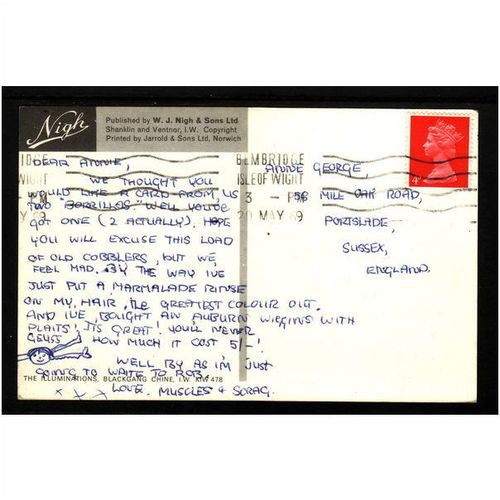 Nigh
Published by W. J. Nigh & Sons Ltd
Shanklin and Ventnor, I.W. Copyright
Printed by Jarrold & Sons Ltd, Norwich
BEMBRIDGE
ISLE OF WIGHT
3 - PM
20 MAY 69
DEAR ANNIE,
WE THOUGHT YOU
WOULD LIKE A CARD FROM US
TWO "BORRILLOS" WELL YOU'VE
GOT ONE (2 ACTUALLY). HOPE
YOU WILL EXCUSE THIS LOAD
OF OLD COBBLERS, BUT WE
FEEL MAD. BY THE WAY I'VE
JUST PUT A MARMALADE RINSE
ON MY HAIR, the GREATEST COLOUR OUT.
AND I'VE BOUGHT AN AUBURN WIGGINS WITH
PLAITS! ITS GREAT! YOU'LL NEVER
GEUSS HOW MUCH IT COST 5/-!
WELL BY AS I'M JUST
GOING TO WRITE TO ROB.
LOVE. MUSCLES & SCRAG.
x x x
ANNIE GEORGE,
58 MILE OAK ROAD,
PORTSLADE,
SUSSEX,
ENGLAND.
THE ILLUMINATIONS, BLACKGANG CHINE, I.W. K/W 478